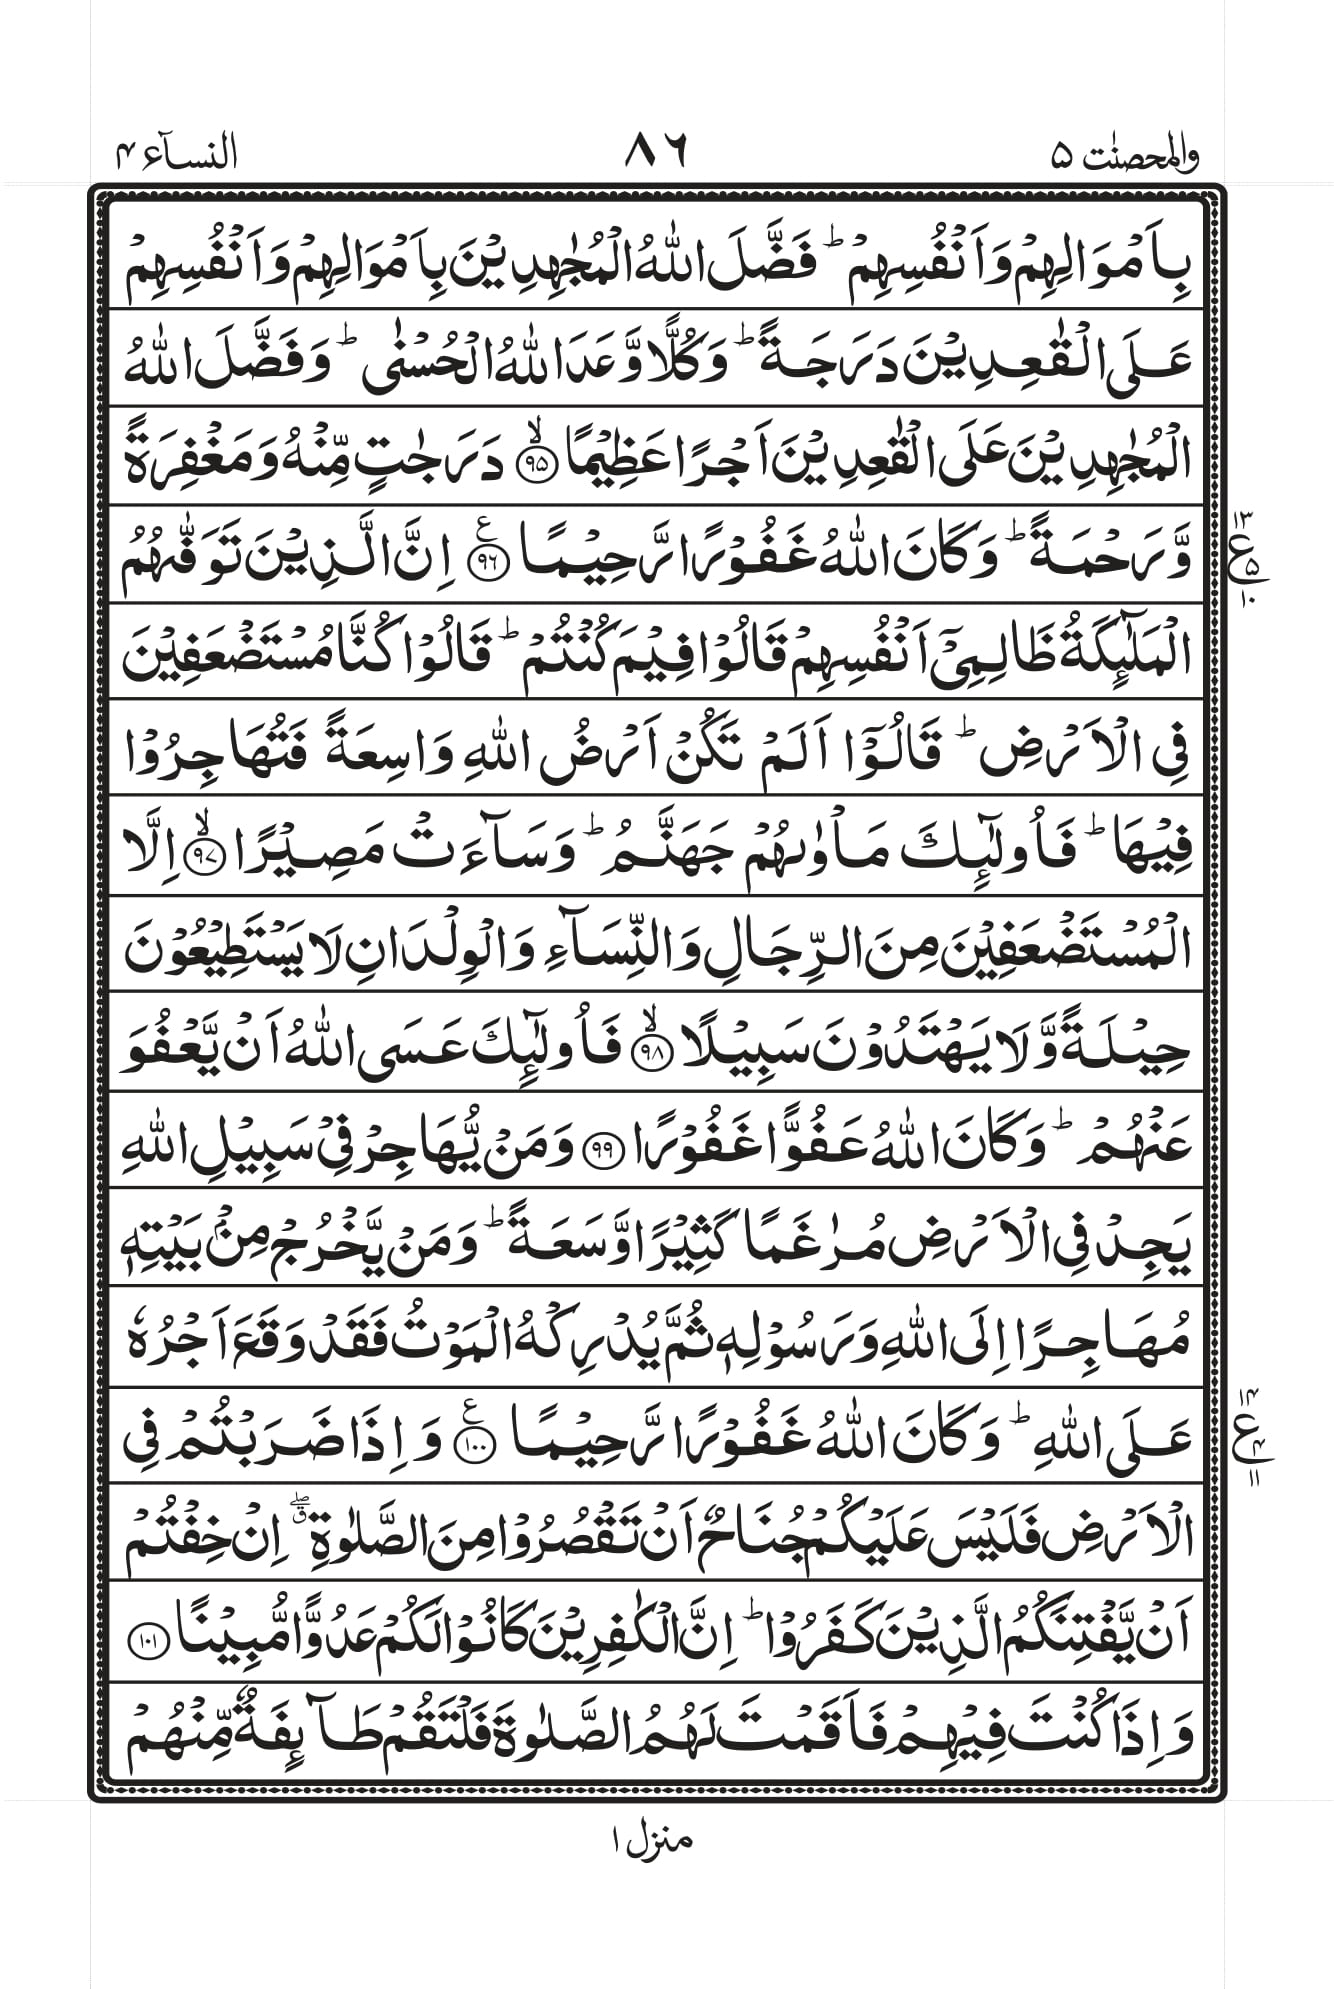 والمحصنٰت ۵
۸۶
النسآء ۴
بِاَمۡوَالِهِمۡ وَاَنۡفُسِهِمۡ ؕ فَضَّلَ اللّٰهُ الۡمُجٰهِدِيۡنَ بِاَمۡوَالِهِمۡ وَاَنۡفُسِهِمۡ
عَلَى الۡقٰعِدِيۡنَ دَرَجَةً ؕ وَكُلًّا وَّعَدَ اللّٰهُ الۡحُسۡنٰى ؕ وَفَضَّلَ اللّٰهُ
الۡمُجٰهِدِيۡنَ عَلَى الۡقٰعِدِيۡنَ اَجۡرًا عَظِيۡمًا ۙ‏﴿۹۵﴾ دَرَجٰتٍ مِّنۡهُ وَمَغۡفِرَةً
وَّرَحۡمَةً ؕ وَكَانَ اللّٰهُ غَفُوۡرًا رَّحِيۡمًا ﴿۹۶﴾ ع اِنَّ الَّذِيۡنَ تَوَفّٰٮهُمُ
۱۳ ع ۵ ۱۰
الۡمَلٰٓٮِٕكَةُ ظَالِمِىۡۤ اَنۡفُسِهِمۡ قَالُوۡا فِيۡمَ كُنۡتُمۡ ؕ قَالُوۡا كُنَّا مُسۡتَضۡعَفِيۡنَ
فِى الۡاَرۡضِ ؕ قَالُوۡۤا اَلَمۡ تَكُنۡ اَرۡضُ اللّٰهِ وَاسِعَةً فَتُهَاجِرُوۡا
فِيۡهَا ؕ فَاُولٰٓٮِٕكَ مَاۡوٰٮهُمۡ جَهَنَّمُ ؕ وَسَآءَتۡ مَصِيۡرًا ۙ‏﴿۹۷﴾ اِلَّا
الۡمُسۡتَضۡعَفِيۡنَ مِنَ الرِّجَالِ وَالنِّسَآءِ وَالۡوِلۡدَانِ لَا يَسۡتَطِيۡعُوۡنَ
حِيۡلَةً وَّلَا يَهۡتَدُوۡنَ سَبِيۡلًا ۙ‏﴿۹۸﴾ فَاُولٰٓٮِٕكَ عَسَى اللّٰهُ اَنۡ يَّعۡفُوَ
عَنۡهُمۡ ؕ وَكَانَ اللّٰهُ عَفُوًّا غَفُوۡرًا ﴿۹۹﴾ وَمَنۡ يُّهَاجِرۡ فِىۡ سَبِيۡلِ اللّٰهِ
يَجِدۡ فِى الۡاَرۡضِ مُرٰغَمًا كَثِيۡرًا وَّسَعَةً ؕ وَمَنۡ يَّخۡرُجۡ مِنۡۢ بَيۡتِهٖ
مُهَاجِرًا اِلَى اللّٰهِ وَرَسُوۡلِهٖ ثُمَّ يُدۡرِكۡهُ الۡمَوۡتُ فَقَدۡ وَقَعَ اَجۡرُهٗ
عَلَى اللّٰهِ ؕ وَكَانَ اللّٰهُ غَفُوۡرًا رَّحِيۡمًا ﴿۱۰۰﴾ ع وَاِذَا ضَرَبۡتُمۡ فِى
۱۴ ع ۴ ۱۱
الۡاَرۡضِ فَلَيۡسَ عَلَيۡكُمۡ جُنَاحٌ اَنۡ تَقۡصُرُوۡا مِنَ الصَّلٰوةِ ۖ ق اِنۡ خِفۡتُمۡ
اَنۡ يَّفۡتِنَكُمُ الَّذِيۡنَ كَفَرُوۡا ؕ اِنَّ الۡكٰفِرِيۡنَ كَانُوۡا لَكُمۡ عَدُوًّا مُّبِيۡنًا ﴿۱۰۱﴾
وَاِذَا كُنۡتَ فِيۡهِمۡ فَاَقَمۡتَ لَهُمُ الصَّلٰوةَ فَلۡتَقُمۡ طَآٮِٕفَةٌ مِّنۡهُمۡ
منزل ۱